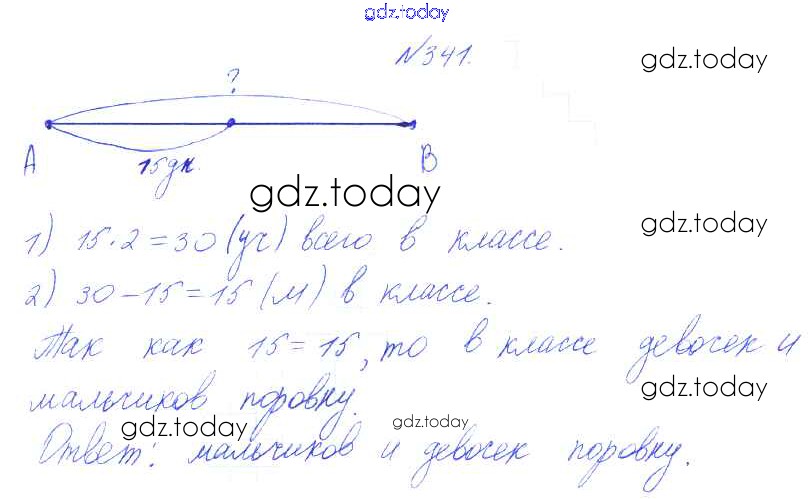 gdz.today
№341.
gdz.today
?
A
15дк.
B
gdz.today
gdz.today
1) 15·2=30(уч) всего в классе.
2) 30-15=15(м) в классе.
Так как 15=15, то в классе девочек и
мальчиков поровну.
gdz.today
gdz.today
gdz.today
Ответ: мальчиков и девочек поровну.